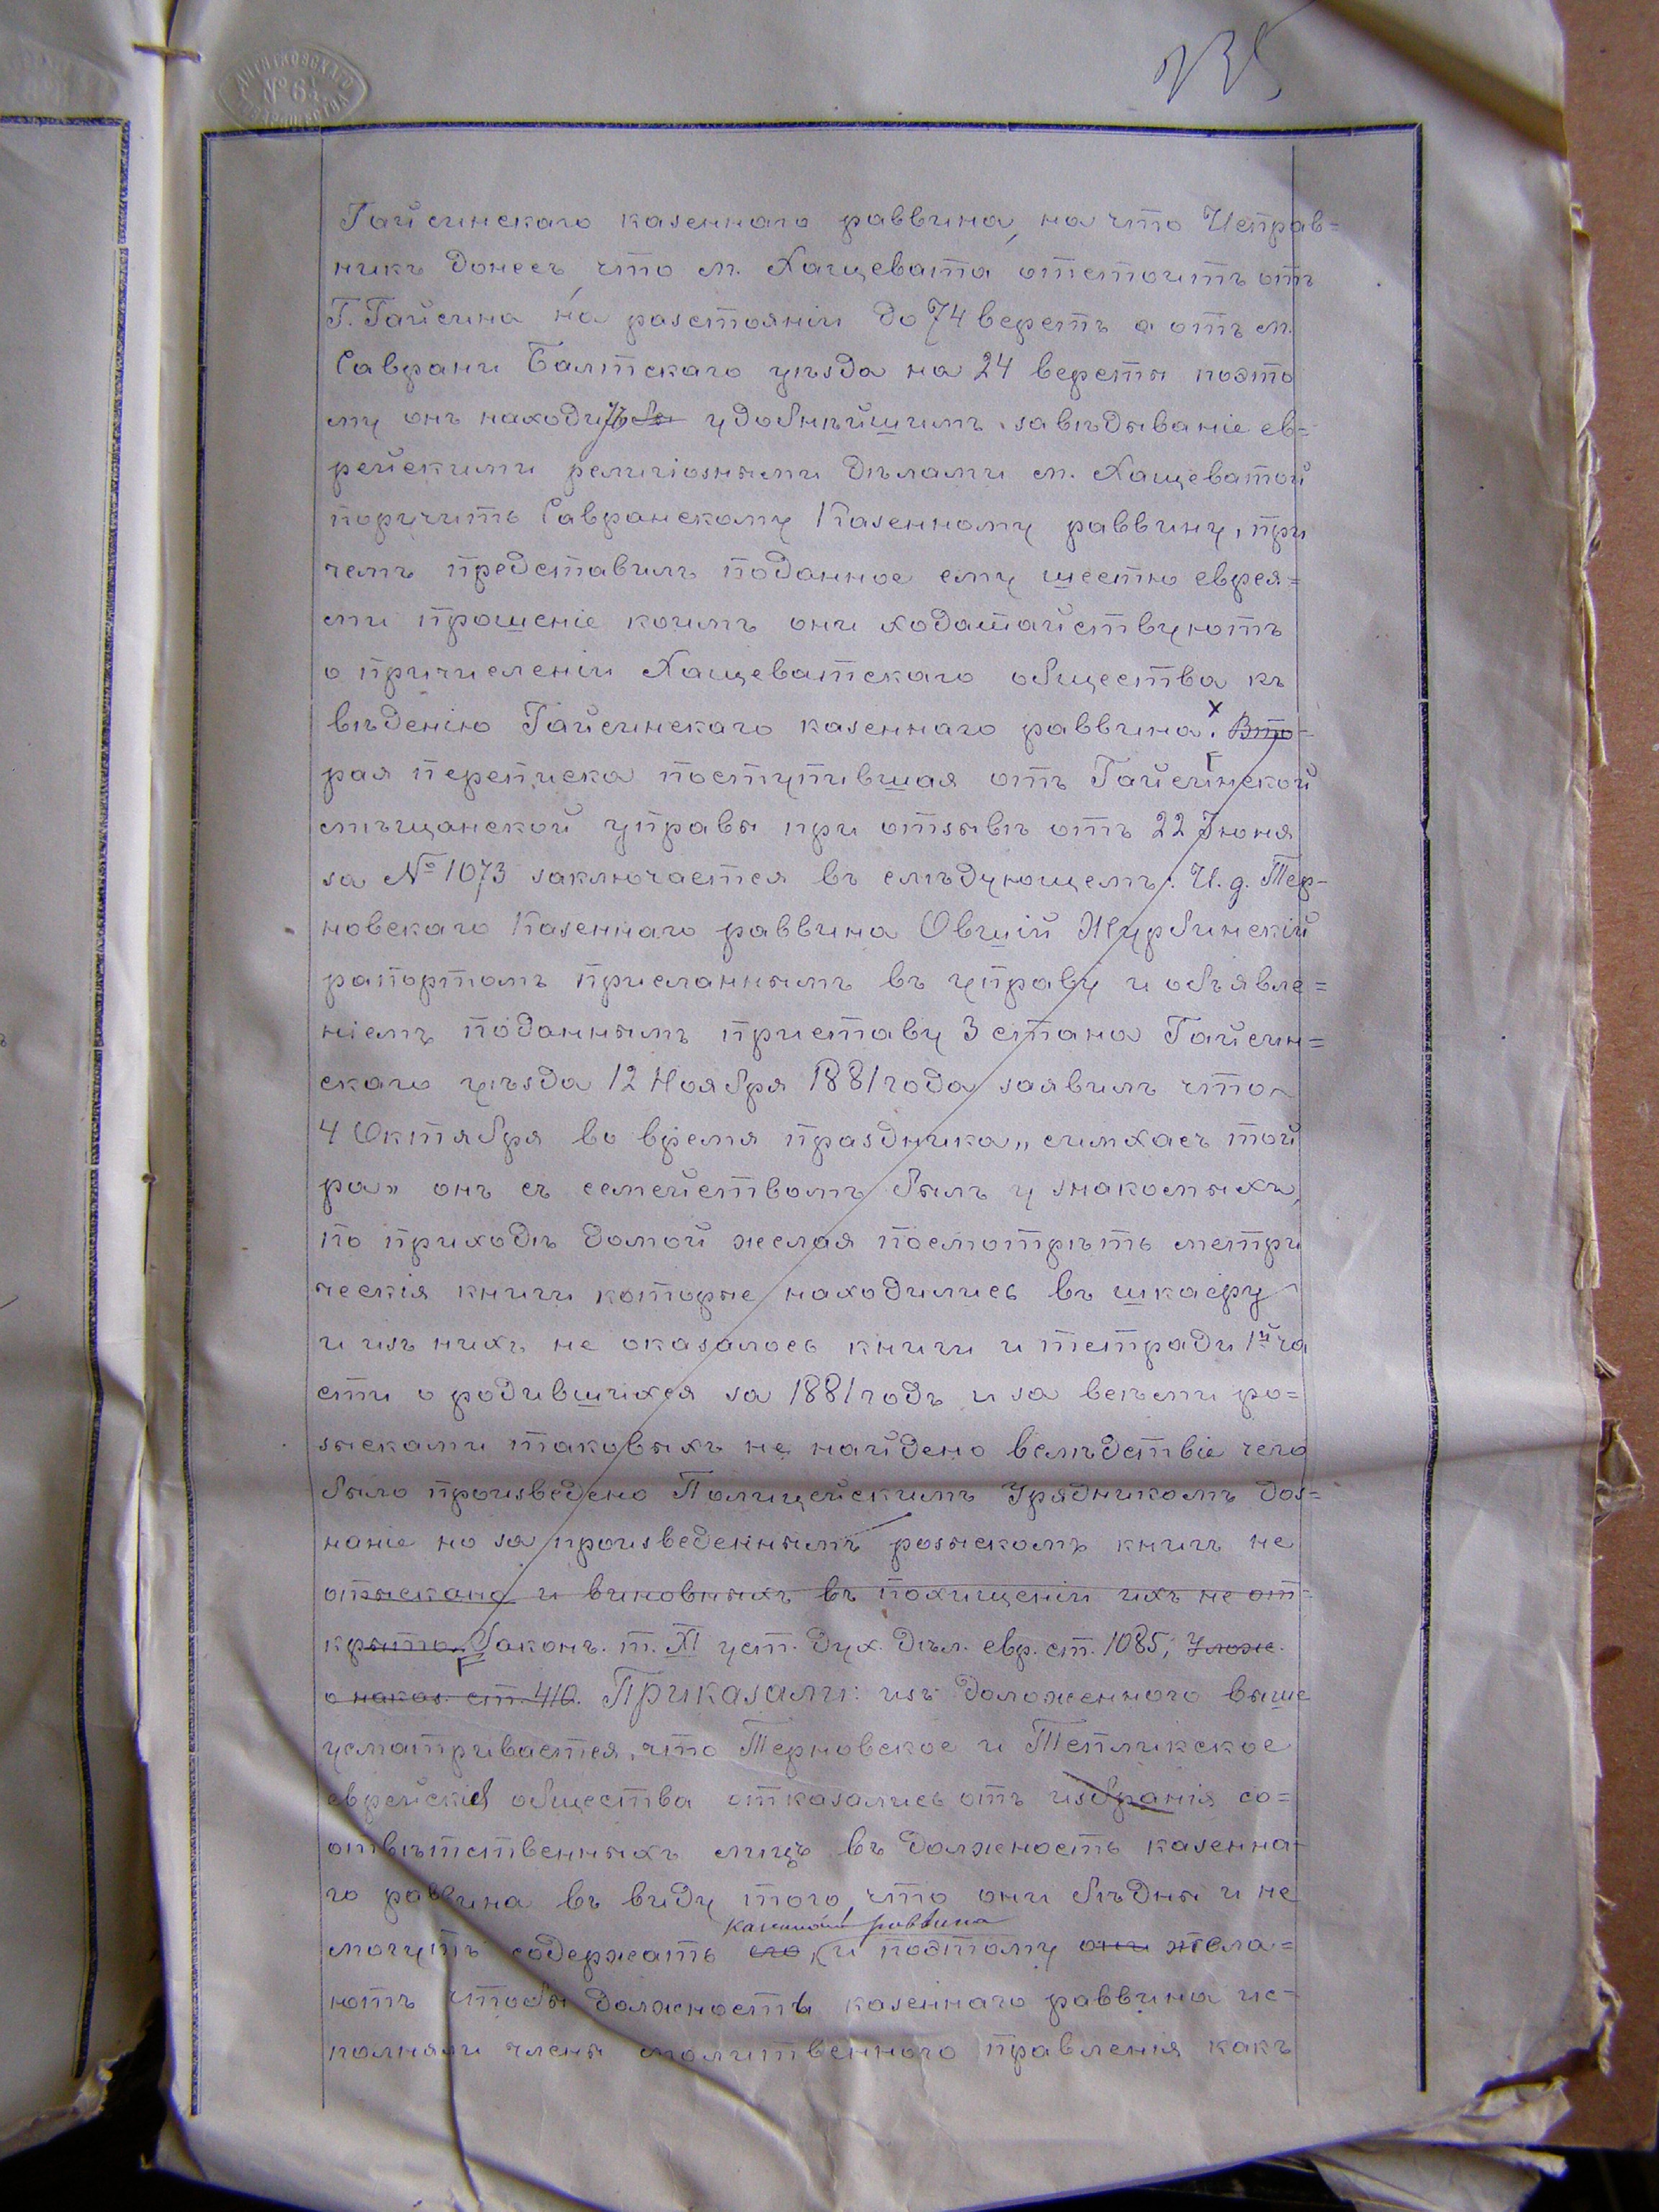 ДИТЯТКОВСКАГО
№ 6½
ТОВАРИЩЕСТВА
Гайсинскаго казеннаго раввина, на что Исправ=
никъ донесъ, что м. Хащевата отстоитъ отъ
Г. Гайсина на разстояніи до 74 верстъ а отъ м.
Саврани Балтскаго уѣзда на 24 версты поэто
му онъ находитъ удобнѣйшимъ завѣдываніе ев=
рейскими религіозными дѣлами м. Хащеватой
поручить Савранскому Казенному раввину, при
чемъ представилъ поданное ему шестью еврея=
ми прошеніе коимъ они ходатайствуютъ
о причисленіи Хащеватскаго общества къ
вѣденію Гайсинскаго казеннаго раввина. Вто=
рая переписка поступившая отъ Гайсинской
мѣщанской управы при отзывѣ отъ 22 Іюня
за № 1073 заключается въ слѣдующемъ: И. д. Тер-
новскаго Казеннаго раввина Овшій Журбинскій
рапортомъ присланнымъ въ управу и объявле=
ніемъ поданнымъ приставу 3 стана Гайсин=
скаго уѣзда 12 Ноября 1881 года заявилъ что
4 Октября во время праздника „симхасъ той
ра" онъ съ семействомъ былъ у знакомыхъ,
по приходѣ домой желая посмотрѣть метри
ческія книги которые находились въ шкафу
и изъ нихъ не оказалось книги и тетради 1й ча
сти о родившихся за 1881 годъ и за всѣми ро=
зысками таковыхъ не найдено вслѣдствіе чего
было произведено Полицейскимъ Урядникомъ доз=
наніе но за произведеннымъ розыскомъ книгъ не
отыскано и виновныхъ въ похищеніи ихъ не от=
крыто. Законъ. т. XI уст. дух. дѣл. евр. ст. 1085, Улож.
о наказ. ст. 410. Приказали: изъ доложенного выше
усматривается, что Терновское и Тепликское
еврейскія общества отказались отъ избранія со=
отвѣтственныхъ лицъ въ должность казенна-
го раввина въ виду того, что они бѣдны и не
казеннаго раввина
могутъ содержать его и поэтому они жела=
ютъ чтобы должность казеннаго раввина ис-
полняли члены молитвенного правленія какъ